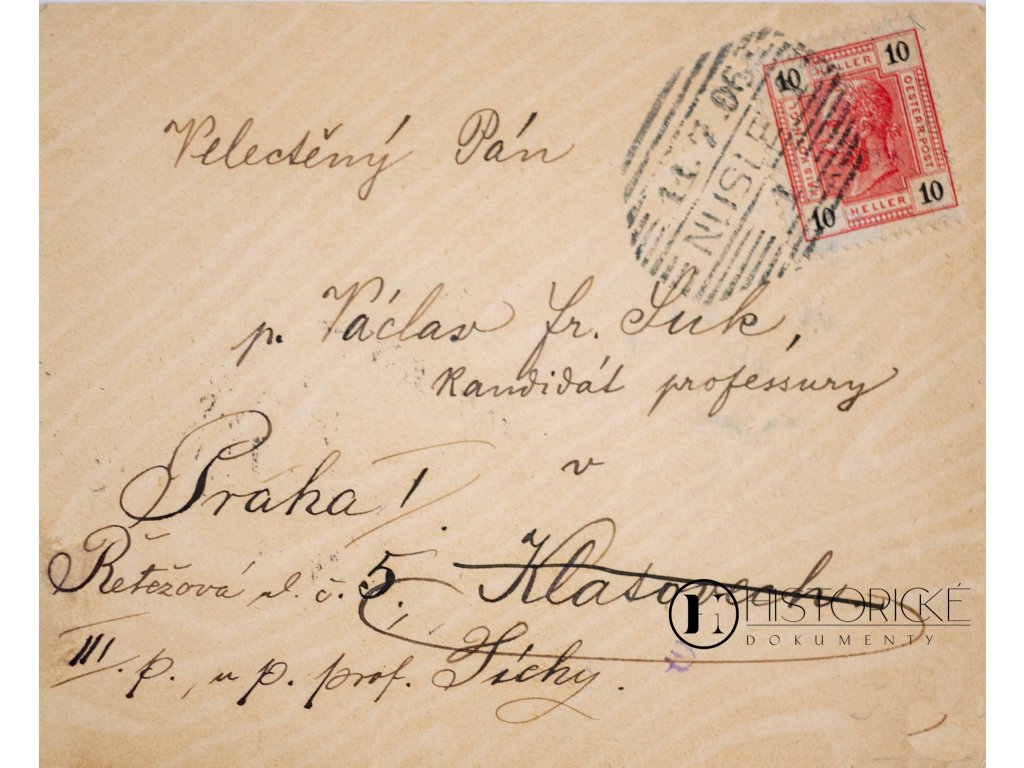 10 HELLER 10
KAIS. KÖNIGL. OESTERR. POST
10 HELLER 10
11. 7 06
NUSLE
1
Velectěný Pán
p. Václav Fr. Suk,
kandidát professury
v
Praha I.
Řetězová ul. č. 5.
III. p., u p. prof. Tichý.
HISTORICKÉ
DOKUMENTY